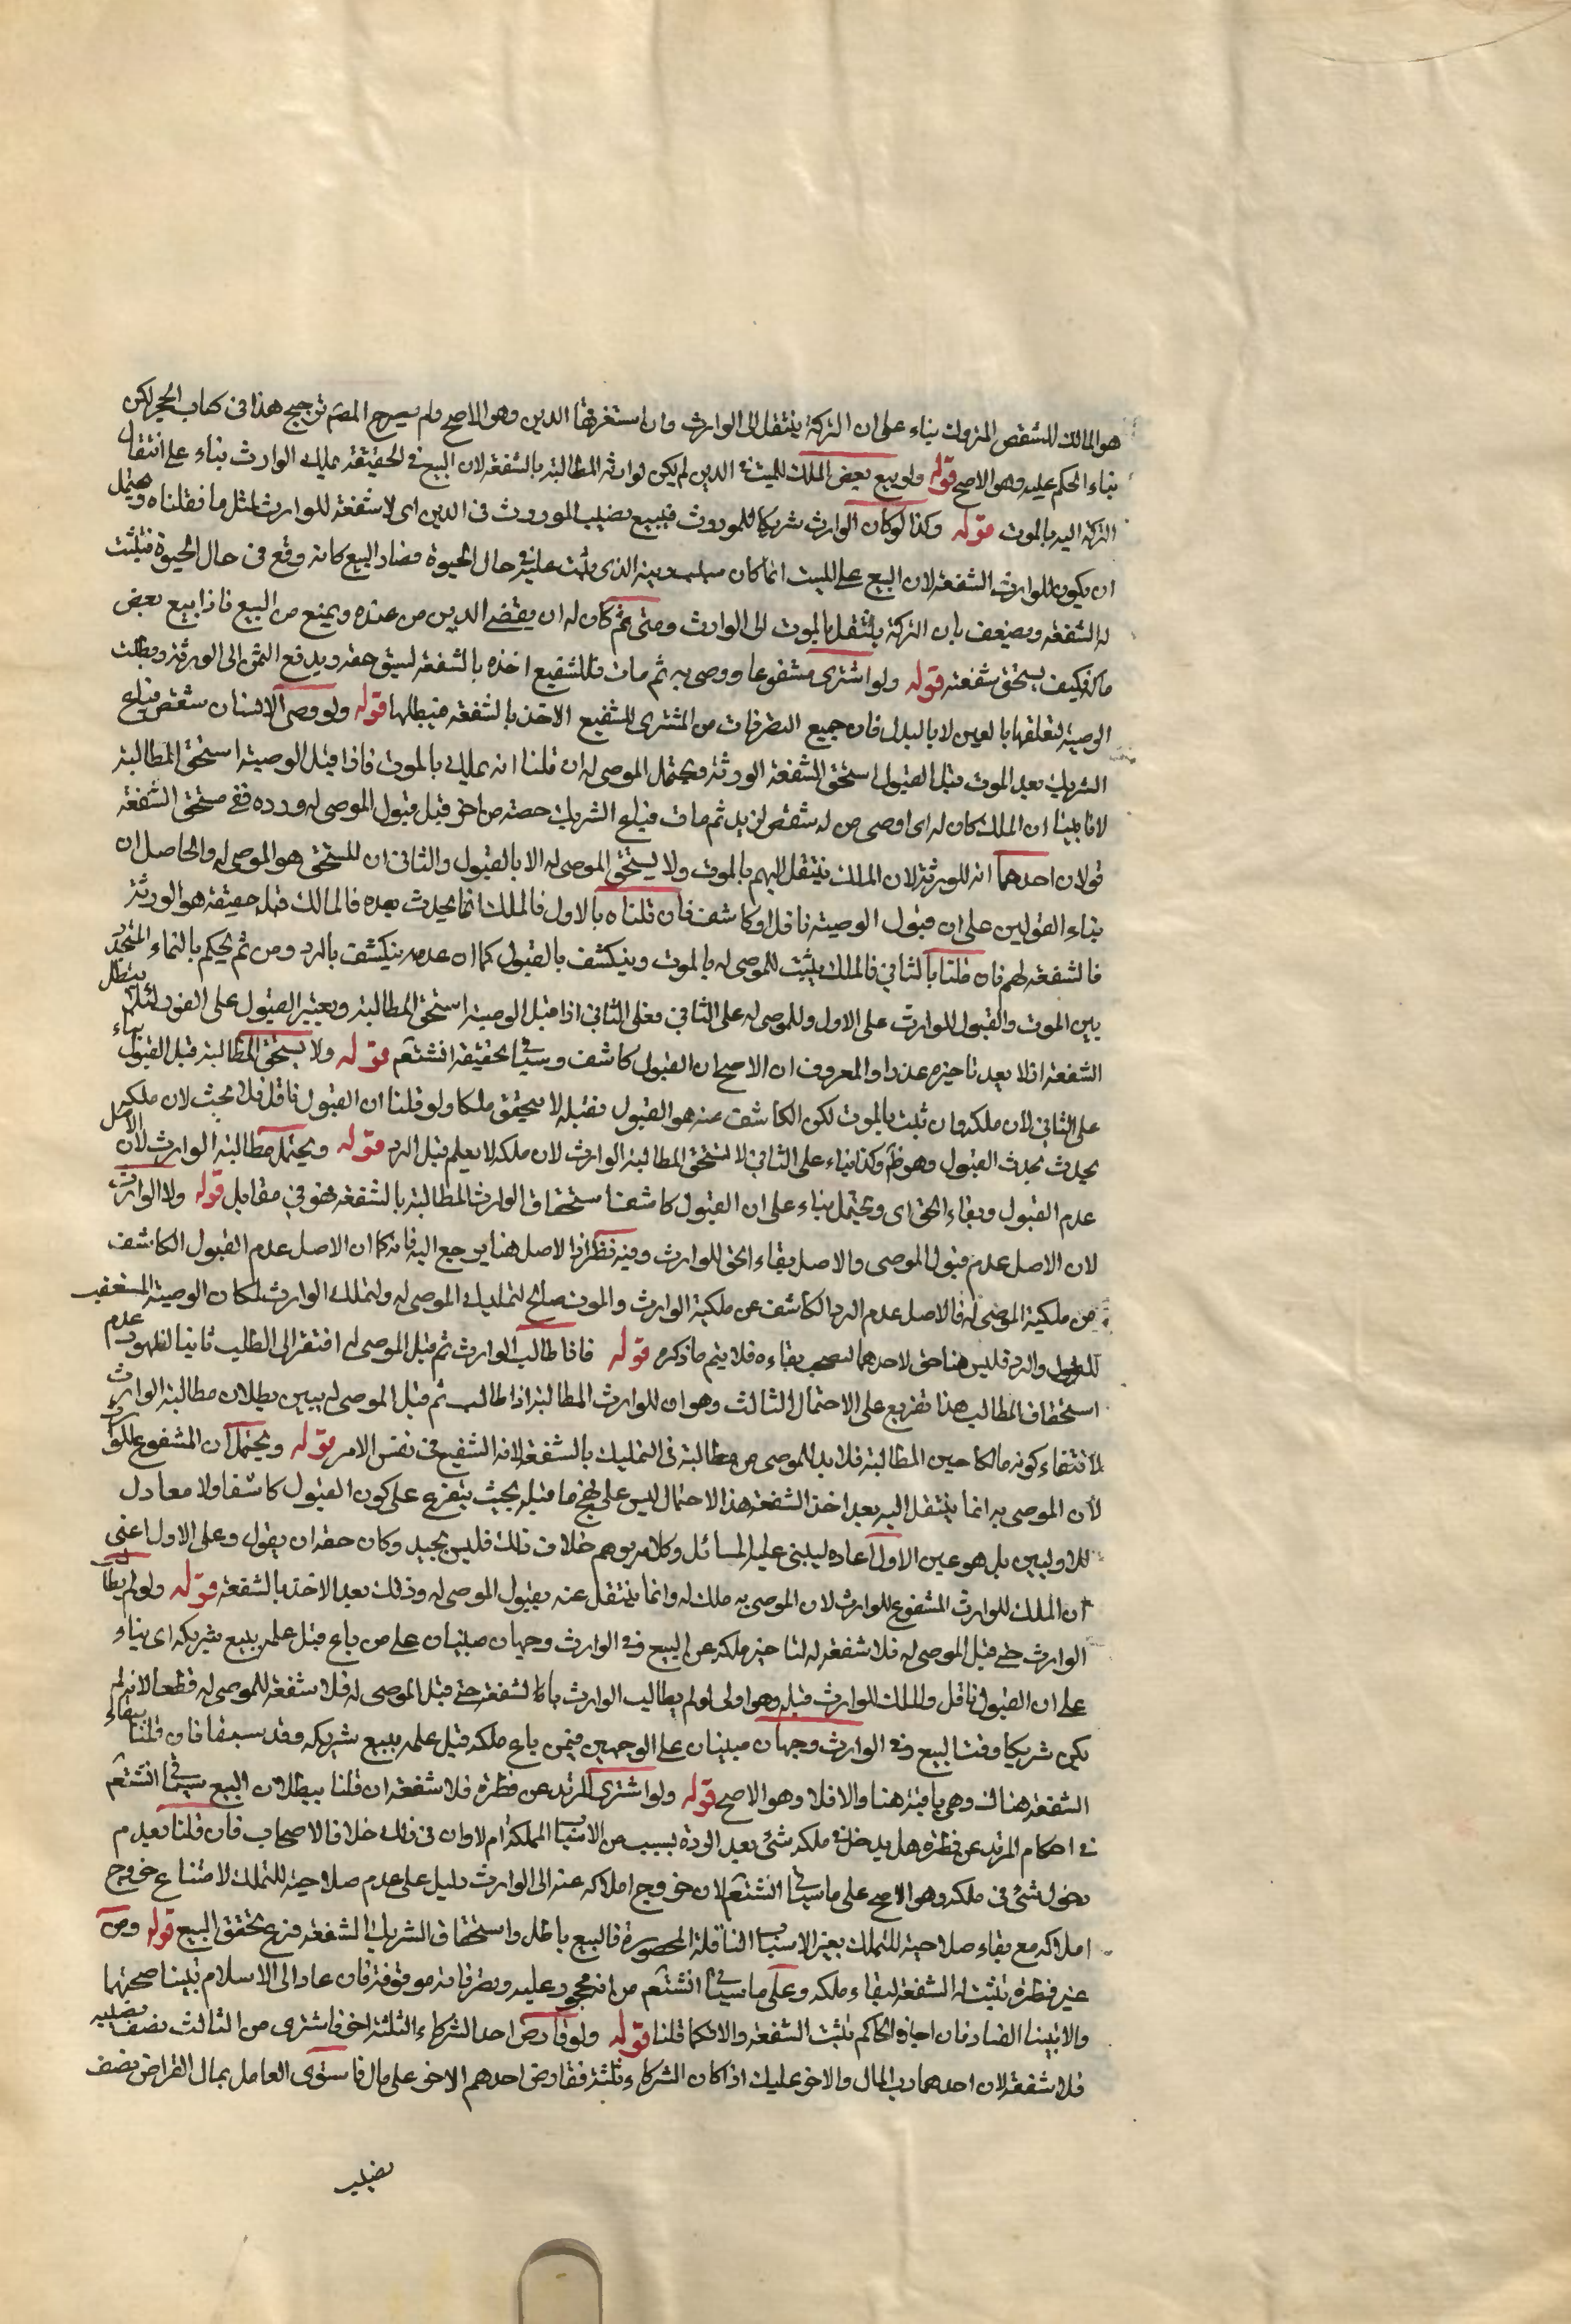 هو المالك للشقص المتروك بناء على ان التركة ينتقل الى الوارث وان استغرقها الدين وهو الاصح ولم يصرح المصم ترجيح هذا فى كتاب الحجر لكن
بناء الحكم عليه وهو الاصح قوله ولو بيع بعض الملك للميت فى الدين لم يكن لوارثه المطالبة بالشفعة لان البيع فى الحقيقة ملك الوارث بناء على انتقال
التركة اليه بالموت قوله وكذا لو كان الوارث شريكا للموروث فبيع نصيب الموروث فى الدين اى لا شفعة للوارث لمثل ما قلناه ويحتمل
ان يكون للوارث الشفعة لان البيع على الميت انما كان بسبب دينه الذى ثبت عليه فى حال الحيوة فصار البيع كانه وقع فى حال الحيوة فيثبت
له الشفعة ويضعف بان التركة ينتقل بالموت الى الوارث ومن ثم كان له ان يقضى الدين من عنده ويمنع من البيع فاذا بيع بعض
ماله فكيف يستحق شفعته قوله ولو اشترى مشفوعا ووصى به ثم مات فللشفيع اخذه بالشفعة لسبق حقه ويدفع الثمن الى الورثة وبطلت
الوصية لتعلقها بالعين لا بالبدل فان جميع التصرفات من المشترى للشفيع الاخذ بالشفعة فيبطلها قوله ولو وصى لانسان بشقص فباع
الشريك بعد الموت قبل القبول استحق الشفعة الورثة ويحتمل الموصى له ان قلنا انه يملك بالموت فاذا قبل الوصية استحق المطالبة
لانا بينا ان الملك كان له اى اوصى من له شقص لزيد ثم مات فباع الشريك حصته من اخر قبل قبول الموصى له ورده ففى مستحق الشفعة
قولان احدهما انه للورثة لان الملك ينتقل اليهم بالموت ولا يستحق الموصى له الا بالقبول والثانى ان المستحق هو الموصى له والحاصل ان
بناء القولين على ان قبول الوصية ناقل او كاشف فان قلناه بالاول فالملك انما يحدث بعده فالمالك قبله حقيقة هو الورثة
فالشفعة لهم فان قلنا بالثانى فالملك يثبت للموصى له بالموت وينكشف بالقبول كما ان عدمه ينكشف بالرد ومن ثم يحكم بالنماء المتجدد
بين الموت والقبول للوارث على الاول وللموصى له على الثانى فعلى الثانى اذا قبل الوصية استحق المطالبة ويعتبر القبول على الفور لئلا يبطل
الشفعة اذ لا يعد تاخيره عذرا والمعروف ان الاصح ان القبول كاشف وسياتى تحقيقه انشتعم قوله ولا يستحق المطالبة قبل القبول بناء
على الثانى لان ملكه وان ثبت بالموت لكن الكاشف عنه هو القبول فقبله لا يتحقق ملكا ولو قلنا ان القبول ناقل فلا بحث لان ملكه
يحدث بحدث القبول وهو ظم وكذا بناء على الثانى لا يستحق المطالبة الوارث لان ملكه لا يعلم قبل الرد قوله ويحتمل مطالبة الوارث لان الاصل
عدم القبول وبقاء الحق اى ويحتمل بناء على ان القبول كاشف استحقاق الوارث المطالبة بالشفعة فهو فى مقابل قوله ولا الوارث
لان الاصل عدم قبول الموصى والاصل بقاء الحق للوارث وفيه نظر اذ الاصل هنا يرجع اليه فانه كما ان الاصل عدم القبول الكاشف
عن ملكية الموصى له فالاصل عدم الرد الكاشف عن ملكية الوارث والموت صالح لتمليك الموصى له ولتملك الوارث لمكان الوصية المستعقب
للقبول والرد فليس هنا حق لاحدهما يستصحب بقاءه فلا يتم ما ذكره قوله فاذا طالب الوارث ثم قبل الموصى له افتقر الى الطلب ثانيا لظهور عدم
استحقاق المطالب هذا تفريع على الاحتمال الثالث وهو ان للوارث المطالبة اذا طالب ثم قبل الموصى له يبين بطلان مطالبة الوارث
لانتفاء كونه مالكا حين المطالبة فلا بد للموصى من مطالبة فى التمليك بالشفعة لانه الشفيع فى نفس الامر قوله ويحتمل ان المشفوع للوارث
لان الموصى به انما ينتقل اليه بعد اخذ الشفعة هذا الاحتمال ليس على نهج ما قبله بحيث يتفرع على كون القبول كاشفا ولا معادل
للاوليين بل هو عين الاول اعاده ليبنى عليه المسائل وكلامه يوهم خلاف ذلك فليس بجيد وكان حقه ان يقول وعلى الاول اعنى
ان الملك للوارث المشفوع للوارث لان الموصى به ملك له وانما ينتقل عنه بقبول الموصى له وذلك بعد الاخذ بالشفعة قوله ولو لم يطالب
الوارث حتى قبل الموصى له فلا شفعة له لتاخير ملكه عن البيع وفى الوارث وجهان مبنيان على من باع قبل علمه ببيع شريكه اى بناء
على ان القبول ناقل والملك للوارث قبله وهو اولى لو لم يطالب الوارث بالشفعة حتى قبل الموصى له فلا شفعة للموصى له قطعا لانه لم
يكن شريكا وقت البيع وفى الوارث وجهان مبنيان على الوجهين فيمن باع ملكه قبل علمه ببيع شريكه وقد سبقا فان قلنا ببقاء
الشفعة هناك فهى باقية هنا والا فلا وهو الاصح قوله ولو اشترى المرتد عن فطرة فلا شفعة ان قلنا ببطلان البيع سياتى انشتعم
فى احكام المرتد عن فطرة هل يدخل فى ملكه شئ بعد الردة بسبب من الاسباب المملكة ام لا وان فى ذلك خلافا لاصحاب فان قلنا بعدم
دخول شئ فى ملكه وهو الاصح على ما سياتى انشتعم لان خروج املاكه عنه الى الوارث دليل على عدم صلاحيته للتملك لامتناع خروج
املاكه مع بقاء صلاحيته للتملك بغير الاسباب الناقلة المحصورة فالبيع باطل واستحقاق الشريك الشفعة فرع تحقق البيع قوله ومن
غير فطرة تثبت له الشفعة لبقاء ملكه وعلى ما سياتى انشتعم من انه محجور عليه وتصرفاته موقوفة فان عاد الى الاسلام تبينا صحتها
والا تبينا الفساد فان اجاز الحاكم تثبت الشفعة والا فكما قلنا قوله ولو قارض احد الشركاء الثلثة اخر فاشترى من الثالث نصف نصيبه
فلا شفعة لان احدهما رب المال والاخر عليك اذا كان الشركاء ثلثة فقارض احدهم الاخر على مال فاشترى العامل بمال القراض نصف
نصيب